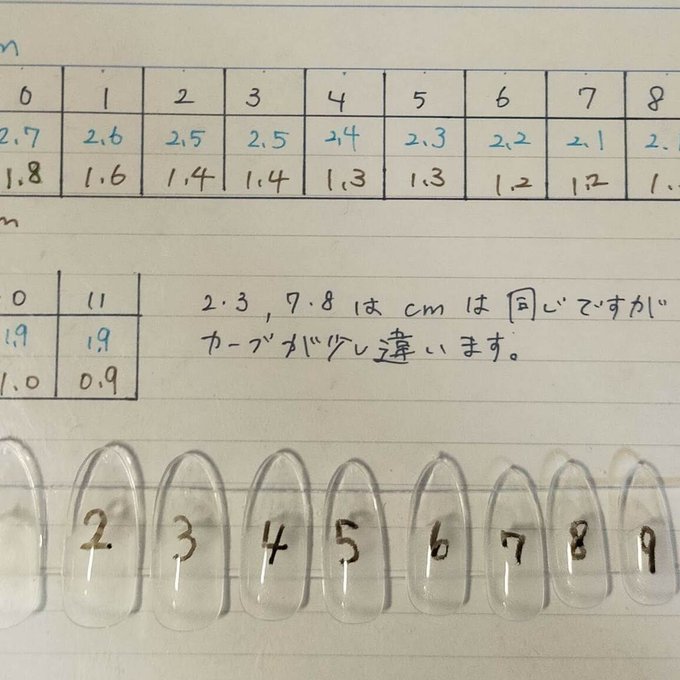 m
0 1 2 3 4 5 6 7 8
2.7 2.6 2.5 2.5 2.4 2.3 2.2 2.1 2.
1.8 1.6 1.4 1.4 1.3 1.3 1.2 1.2 1.
m
0 11
1.9 1.9
1.0 0.9
2・3, 7・8 は cm は 同じですが
カーブが少し違います。
2 3 4 5 6 7 8 9